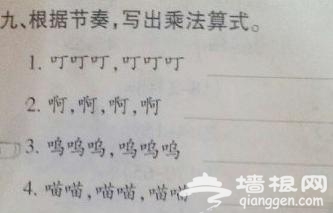 九、根据节奏,写出乘法算式。
1. 叮叮叮,叮叮叮
2. 啊,啊,啊,啊
3. 呜呜呜,呜呜呜
4. 喵喵,喵喵,喵喵
墙根网
qianggen.com